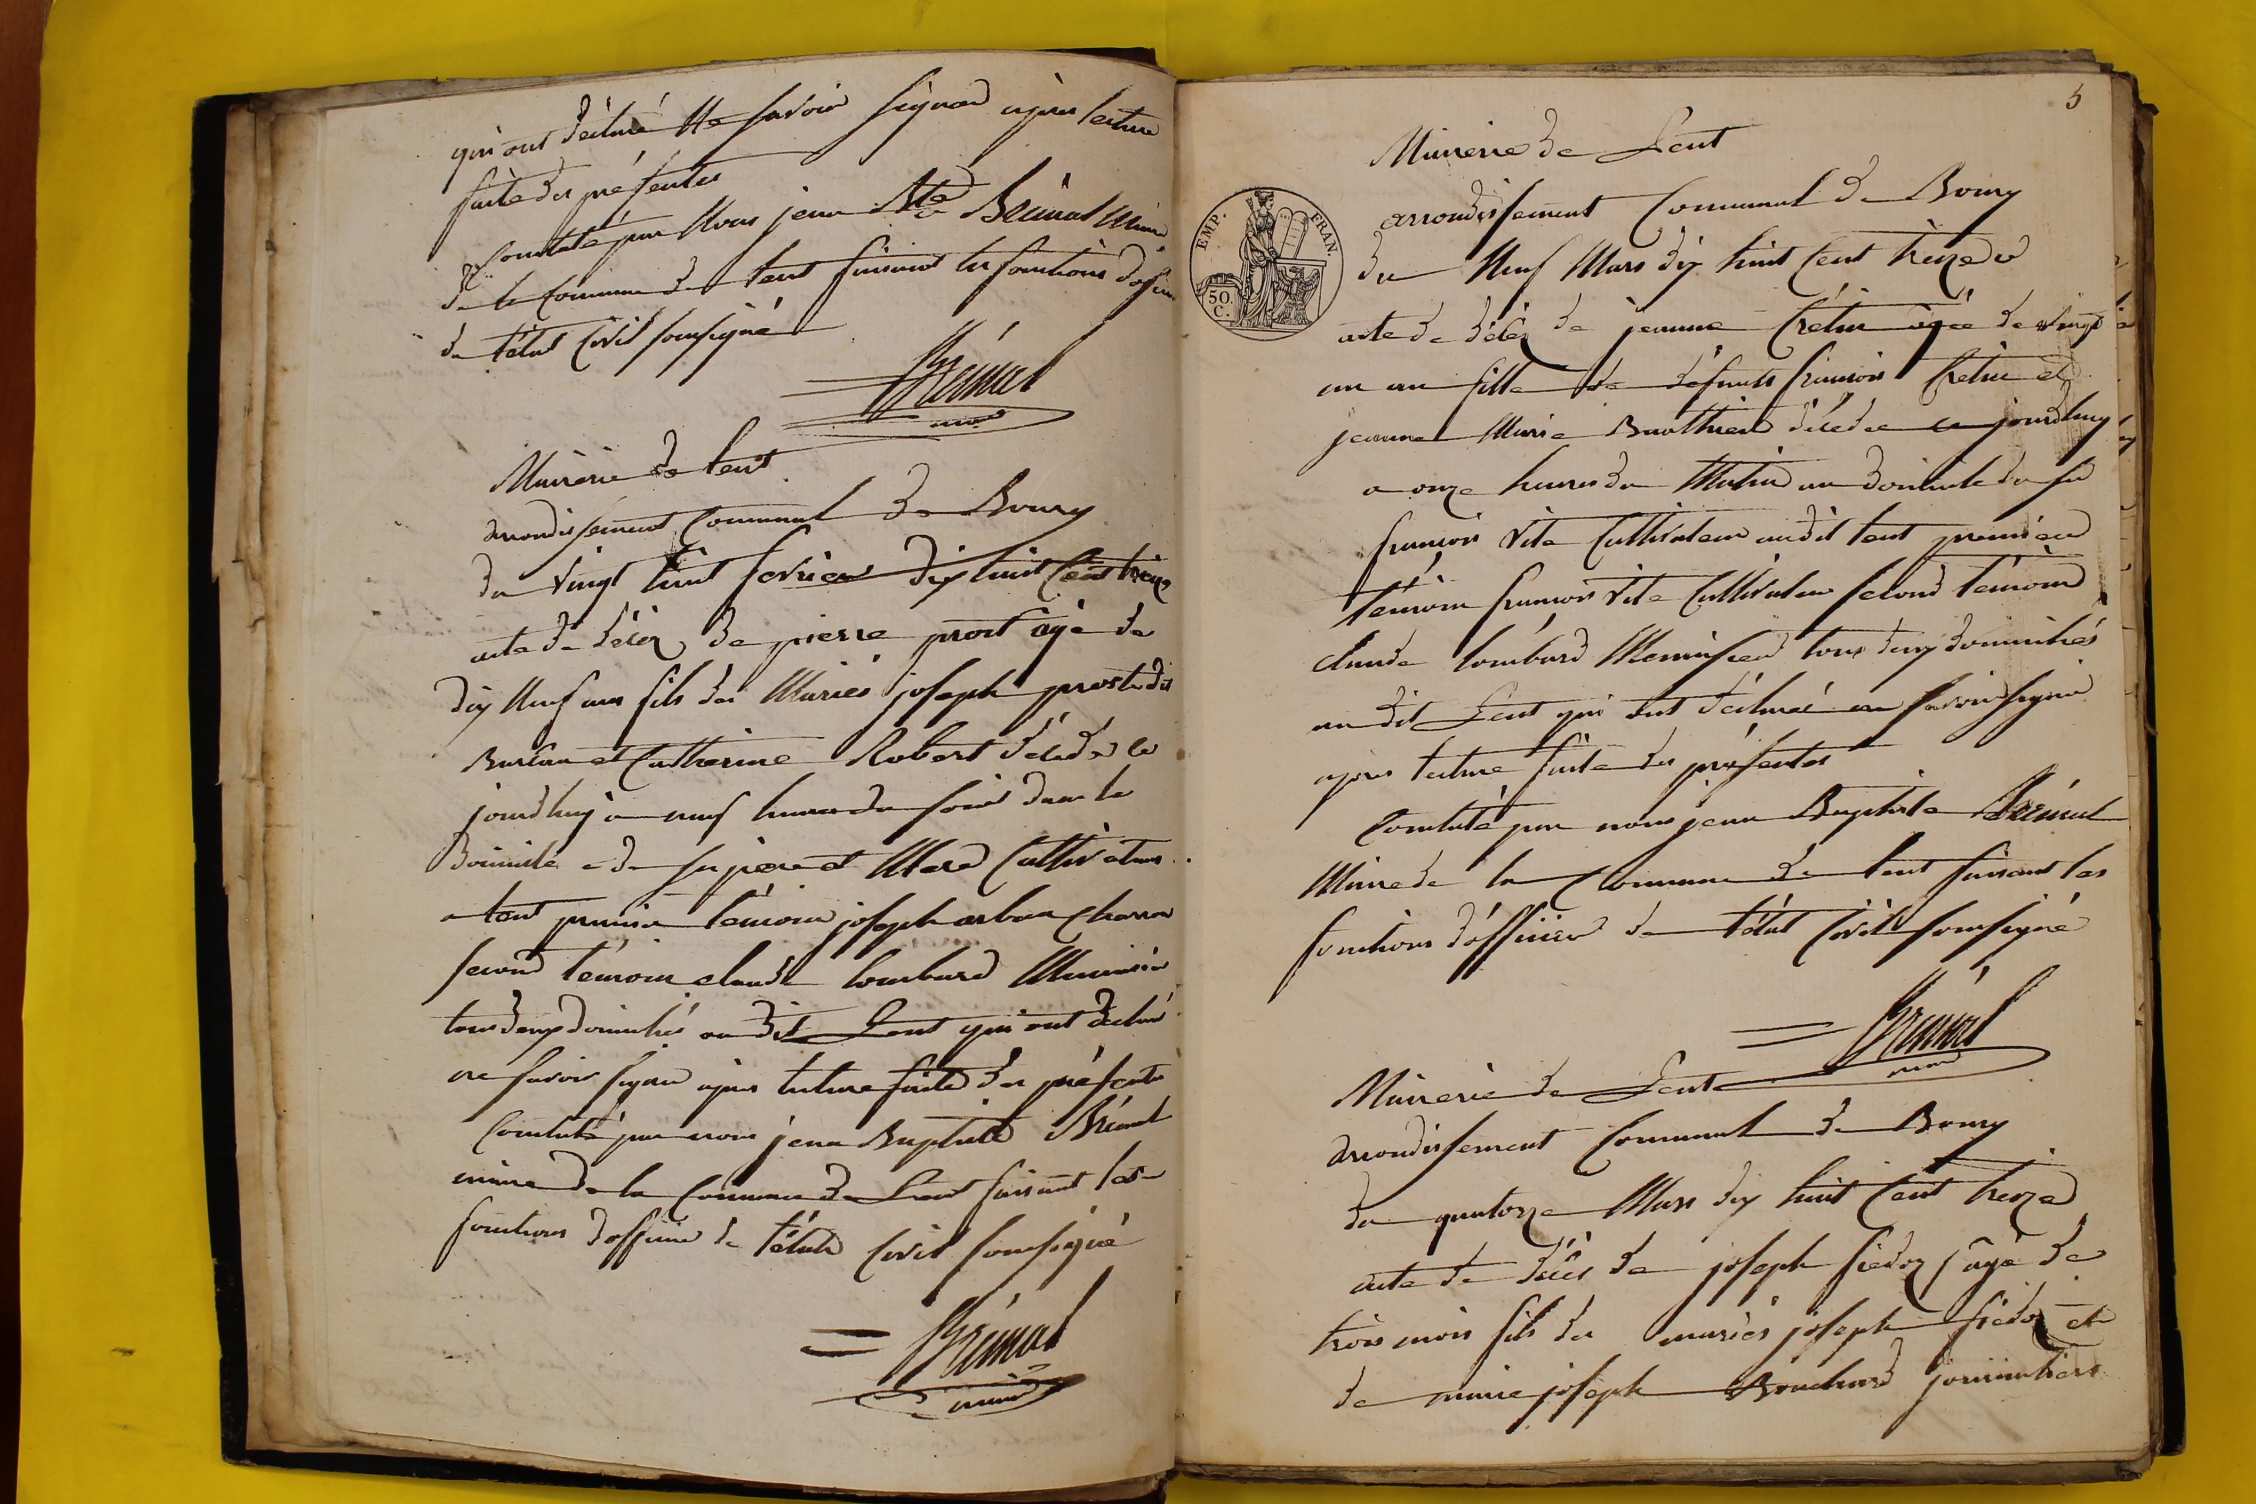 qui ont déclaré Ne savoir signer après lecture
faite des présentes
Constaté par Nous jean Bte Bréinal Maire
de la Commune de lent faisant les fonctions
de l'état Civil soussigné
Bréinal
maire
Mairerie de lent
arrondissement Communal de Bourg
du vingt huit fevrier dix huit Cent treize
acte de décès de pierre prost âgé de
dix Neuf ans fils des Mariés joseph prost dit
et Catherine Robert décédé ce
jourd'huy a neuf heures du soir dans le
Domicile de ses pere et Mere Cultivateurs
a lent premier témoin joseph charron
second témoin claude lombard Menuisier
tous deux domiciliés au dit Lent qui ont déclaré
ne savoir signer après lecture faite des présentes
Constaté par nous jean Baptiste Bréinal
maire de la Commune de Lent faisant les
fonctions d'officier de l'état Civil soussigné
Bréinal
maire
5
Mairerie de Lent
arrondissement Communal de Bourg
EMP. FRAN.
50. C.
du Neuf Mars dix huit Cent treize
acte de décès de jeanne Crétin agée de vingt
un an fille de défunts françois Crétin et
jeanne Marie décédée ce jourd'huy
a onze heures du Matin au domicile du sr
françois Vite Cultivateur audit lent premier
témoin françois Vite Cultivateur second témoin
claude lombard Menuisier tous deux domiciliés
au dit Lent qui ont déclaré ne savoir signer
apres lecture faite des présentes
Constaté par nous jean Baptiste Bréinal
Maire de la Commune de lent faisant les
fonctions d'officier de l'état Civil soussigné
Bréinal
maire
Mairerie de Lent
arrondissement Communal de Bourg
du quatorze Mars dix huit Cent treize
acte de décès de joseph âgé de
trois mois fils des mariés joseph et
de marie joseph Bouchard journaliers